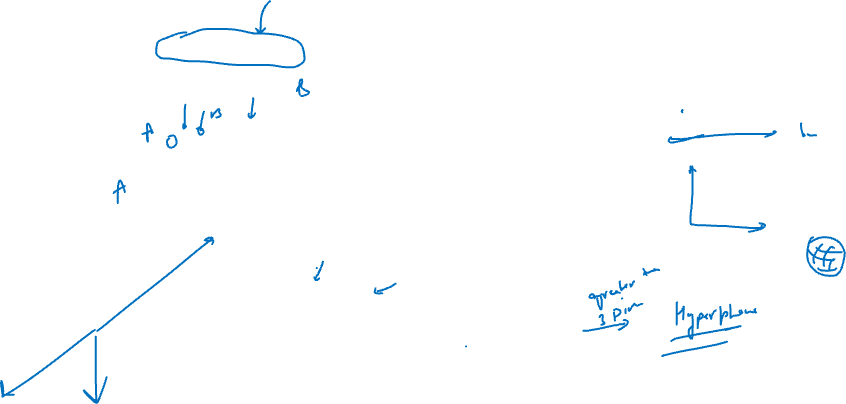 B
A
B
A
greater than
3 Dim
Hyperplane